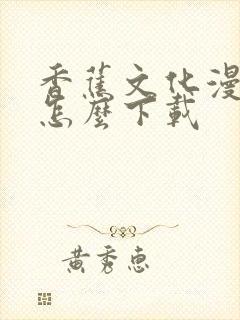 香蕉文化漫
怎麼下載
黃秀惠